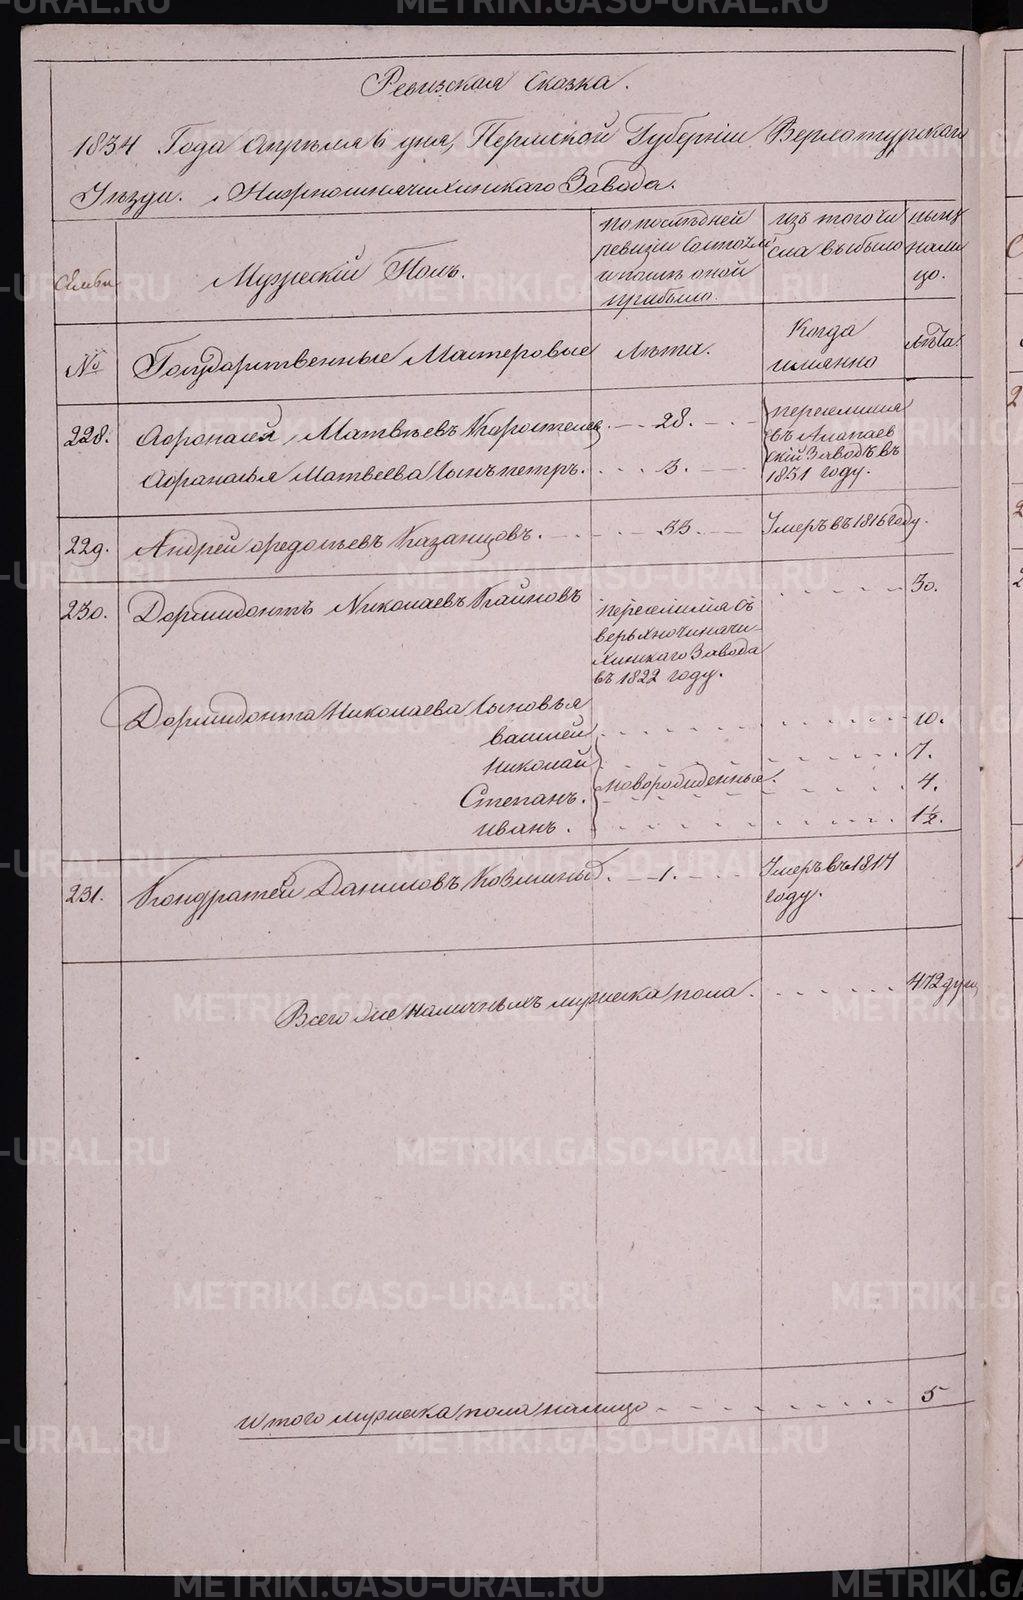 Ревизская Сказка.
1834 Года Апреля 6 дня, Пермской Губернiи Верхотурскаго
Уезди. Нижношиначихинскаго Завода.
Семьи
Мужескiй Полъ.
по последней ревизiи состояло и после оной прибыло.
изъ того числа выбыло
ныне на лицо.
№
Государственные Мастеровые
Лета.
Когда имянно
Лета.
228. Афонасей Матвеевъ Коростелевъ. 28. переселился въ Алапаевскiй Заводъ въ 1831 году.
Афанасья Матвеева сынъ петръ. 3.
229. Андрей Федосьевъ Казанцовъ. 33. Умеръ въ 1816 году.
230. Дормидонтъ Николаевъ Кайновъ переселился съ верьхночиначихинскаго Завода въ 1822 году. 30.
Дормидонта Николаева сыновья
васшей 10.
Николай 7.
Степанъ. новорожденныя. 4.
иванъ. 1½.
231. Кондратей Даниловъ Козминых. 1. Умеръ въ 1817 году.
Всего же наличныхъ мужеска пола. 472 душ
итого мужеска пола налицо 5
METRIKI.GASO-URAL.RU